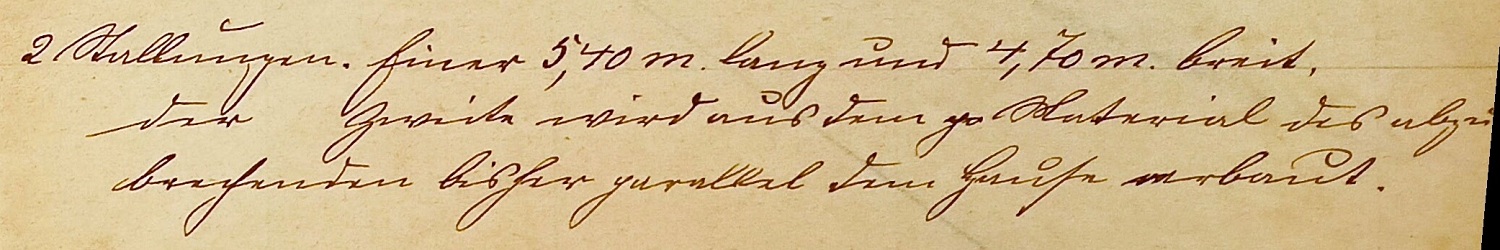 2 Stallungen. Einer 5,40 m. lang und 4,70 m. breit,
der Zweite wird aus dem Material des abzu
brechenden bisher parallel dem Hause erbaut.